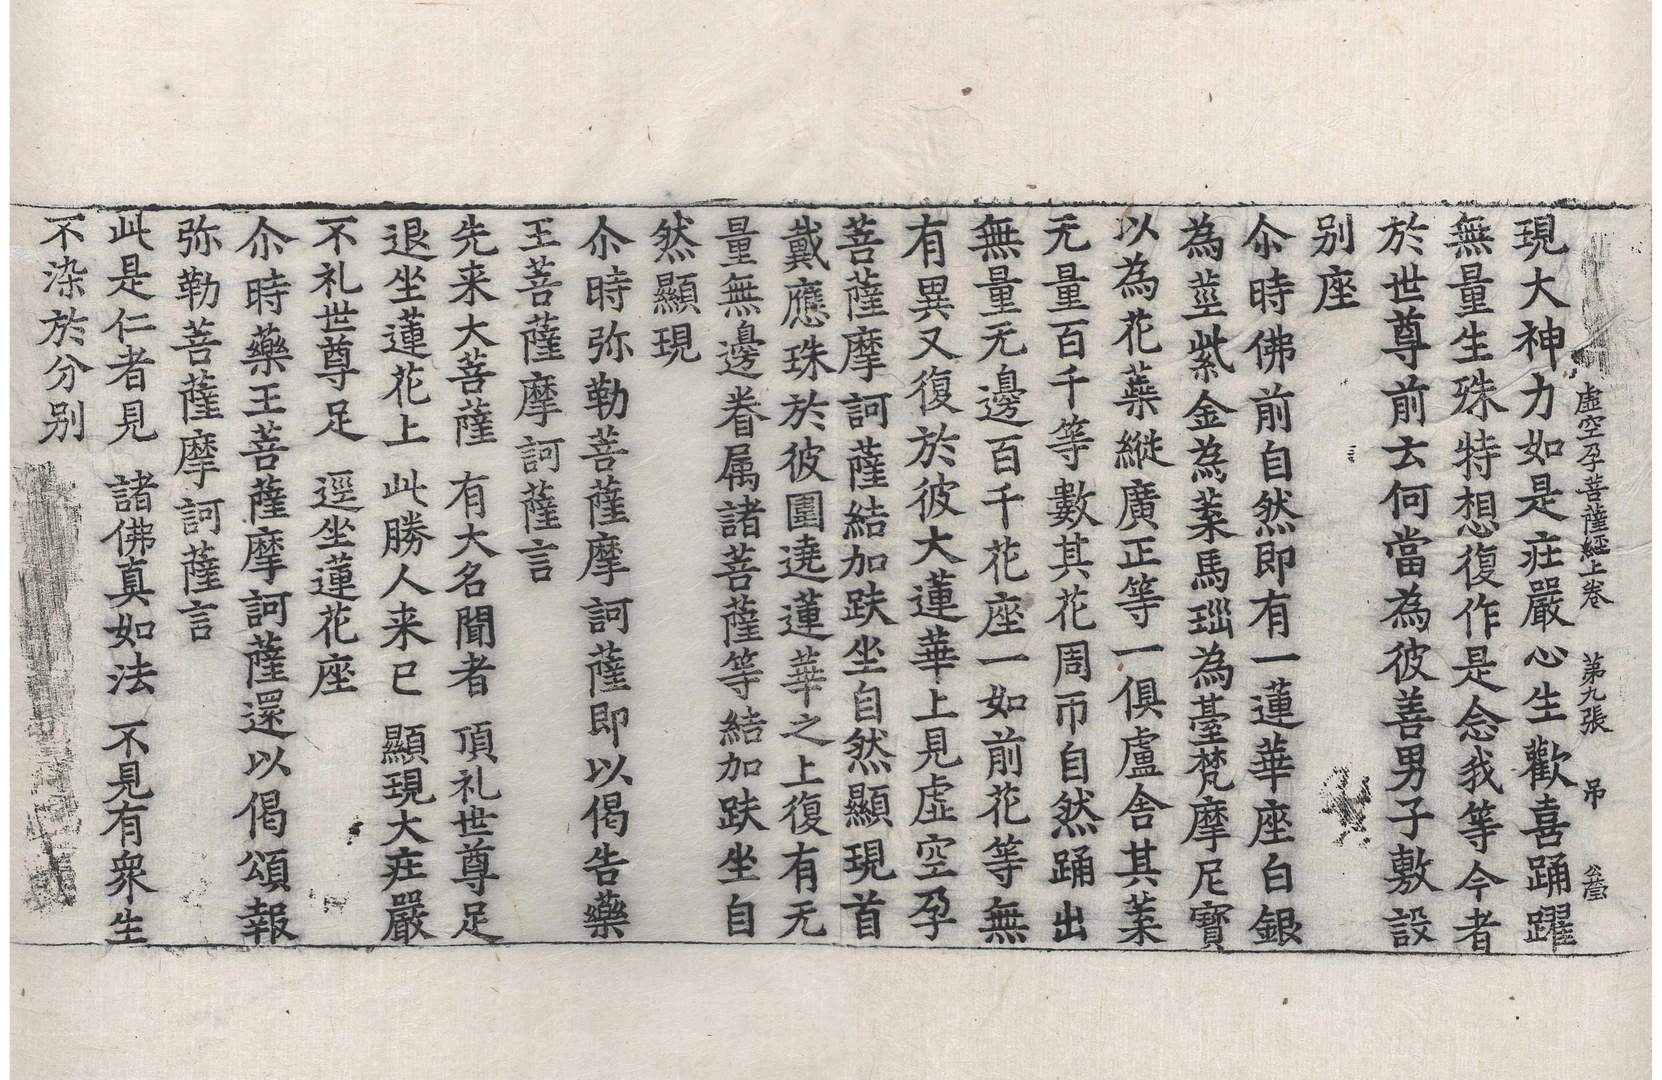 虛空孕菩薩經上卷 第九張 吊 公瑩
現大神力如是庄嚴心生歡喜踊躍
無量生殊特想復作是念我等今者
於世尊前云何當為彼善男子敷設
别座
尒時佛前自然即有一蓮華座白銀
為莖紫金為葉馬瑙為臺梵摩尼寶
以為花蘂縱廣正等一俱盧舍其葉
无量百千等數其花周帀自然踊出
無量无邊百千花座一如前花等無
有異又復於彼大蓮華上見虛空孕
菩薩摩訶薩結加趺坐自然顯現首
戴應珠於彼圍遶蓮華之上復有无
量無邊眷属諸菩薩等結加趺坐自
然顯現
尒時弥勒菩薩摩訶薩即以偈告藥
王菩薩摩訶薩言
先来大菩薩 有大名聞者 頂礼世尊足
退坐蓮花上 此勝人来已 顯現大庄嚴
不礼世尊足 逕坐蓮花座
尒時藥王菩薩摩訶薩還以偈頌報
弥勒菩薩摩訶薩言
此是仁者見 諸佛真如法 不見有衆生
不染於分别